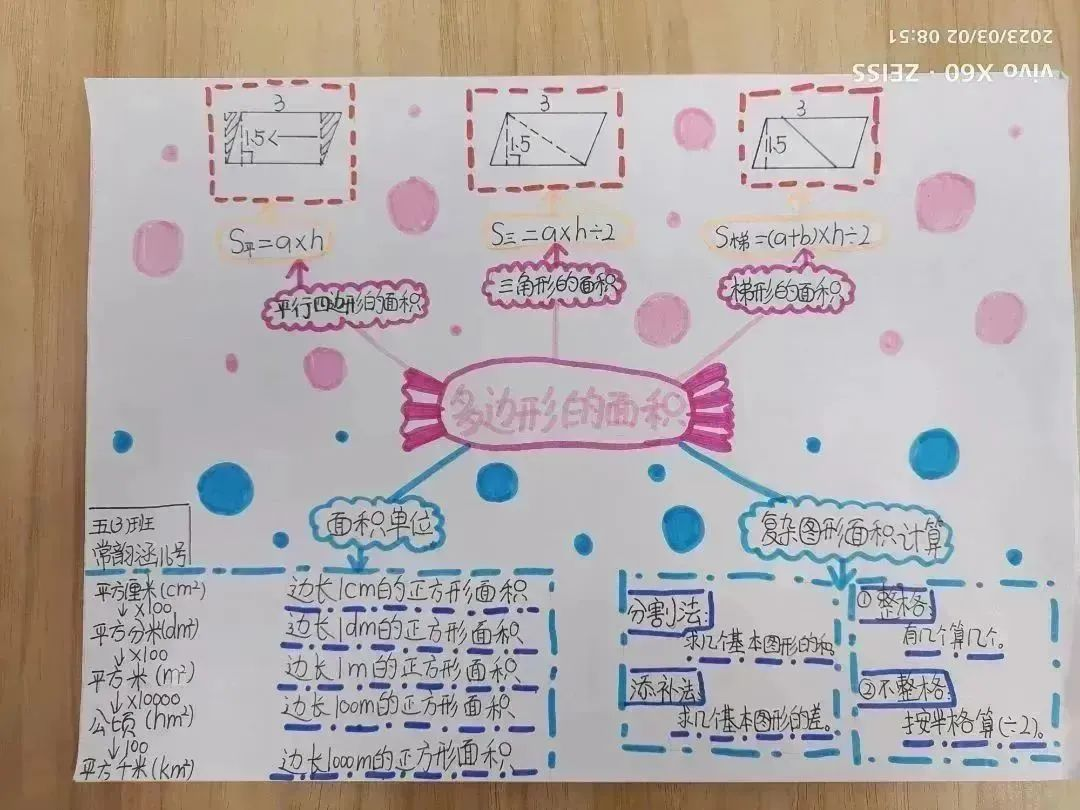 2023/03/02 08:51
vivo X60 · ZEISS
3
1.5
3
1.5
3
1.5
S平=a×h
S三=a×h÷2
S梯=(a+b)×h÷2
平行四边形的面积
三角形的面积
梯形的面积
多边形的面积
面积单位
复杂图形面积计算
五(3)班
常韵涵16号
平方厘米(cm²)
↓×100
平方分米(dm²)
↓×100
平方米(m²)
↓×10000
公顷(hm²)
↓100
平方千米(km²)
边长1cm的正方形面积
边长1dm的正方形面积
边长1m的正方形面积
边长100m的正方形面积
边长1000m的正方形面积
分割法:
求几个基本图形的和
添补法:
求几个基本图形的差。
①整格:
有几个算几个。
②不整格:
按半格算(÷2)。